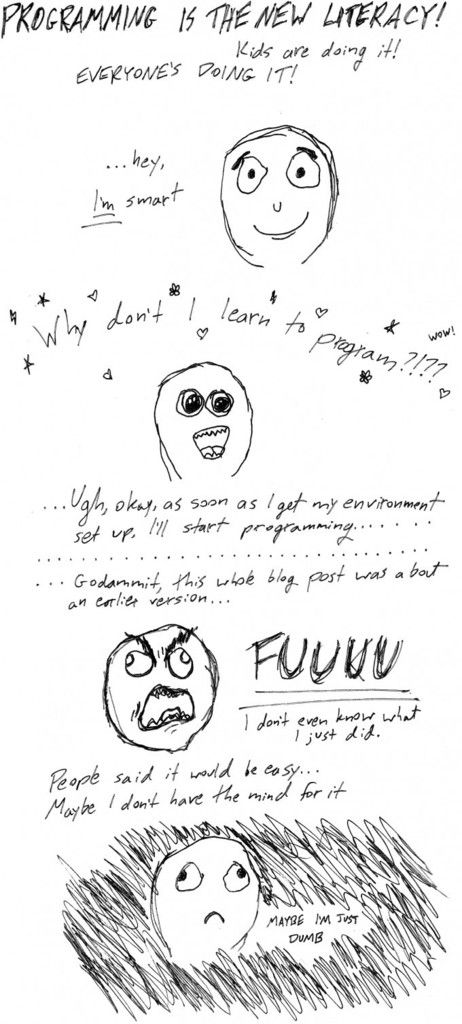 PROGRAMMING IS THE NEW LITERACY!
Kids are doing it!
EVERYONE'S DOING IT!
...hey,
I'm smart
Why don't I learn to program?!??
WOW!
...Ugh, okay, as soon as I get my environment
set up, I'll start programming.......
..............................
... Godammit, this whole blog post was about
an earlier version...
FUUUU
I don't even know what
I just did.
People said it would be easy...
Maybe I don't have the mind for it
MAYBE I'M JUST
DUMB